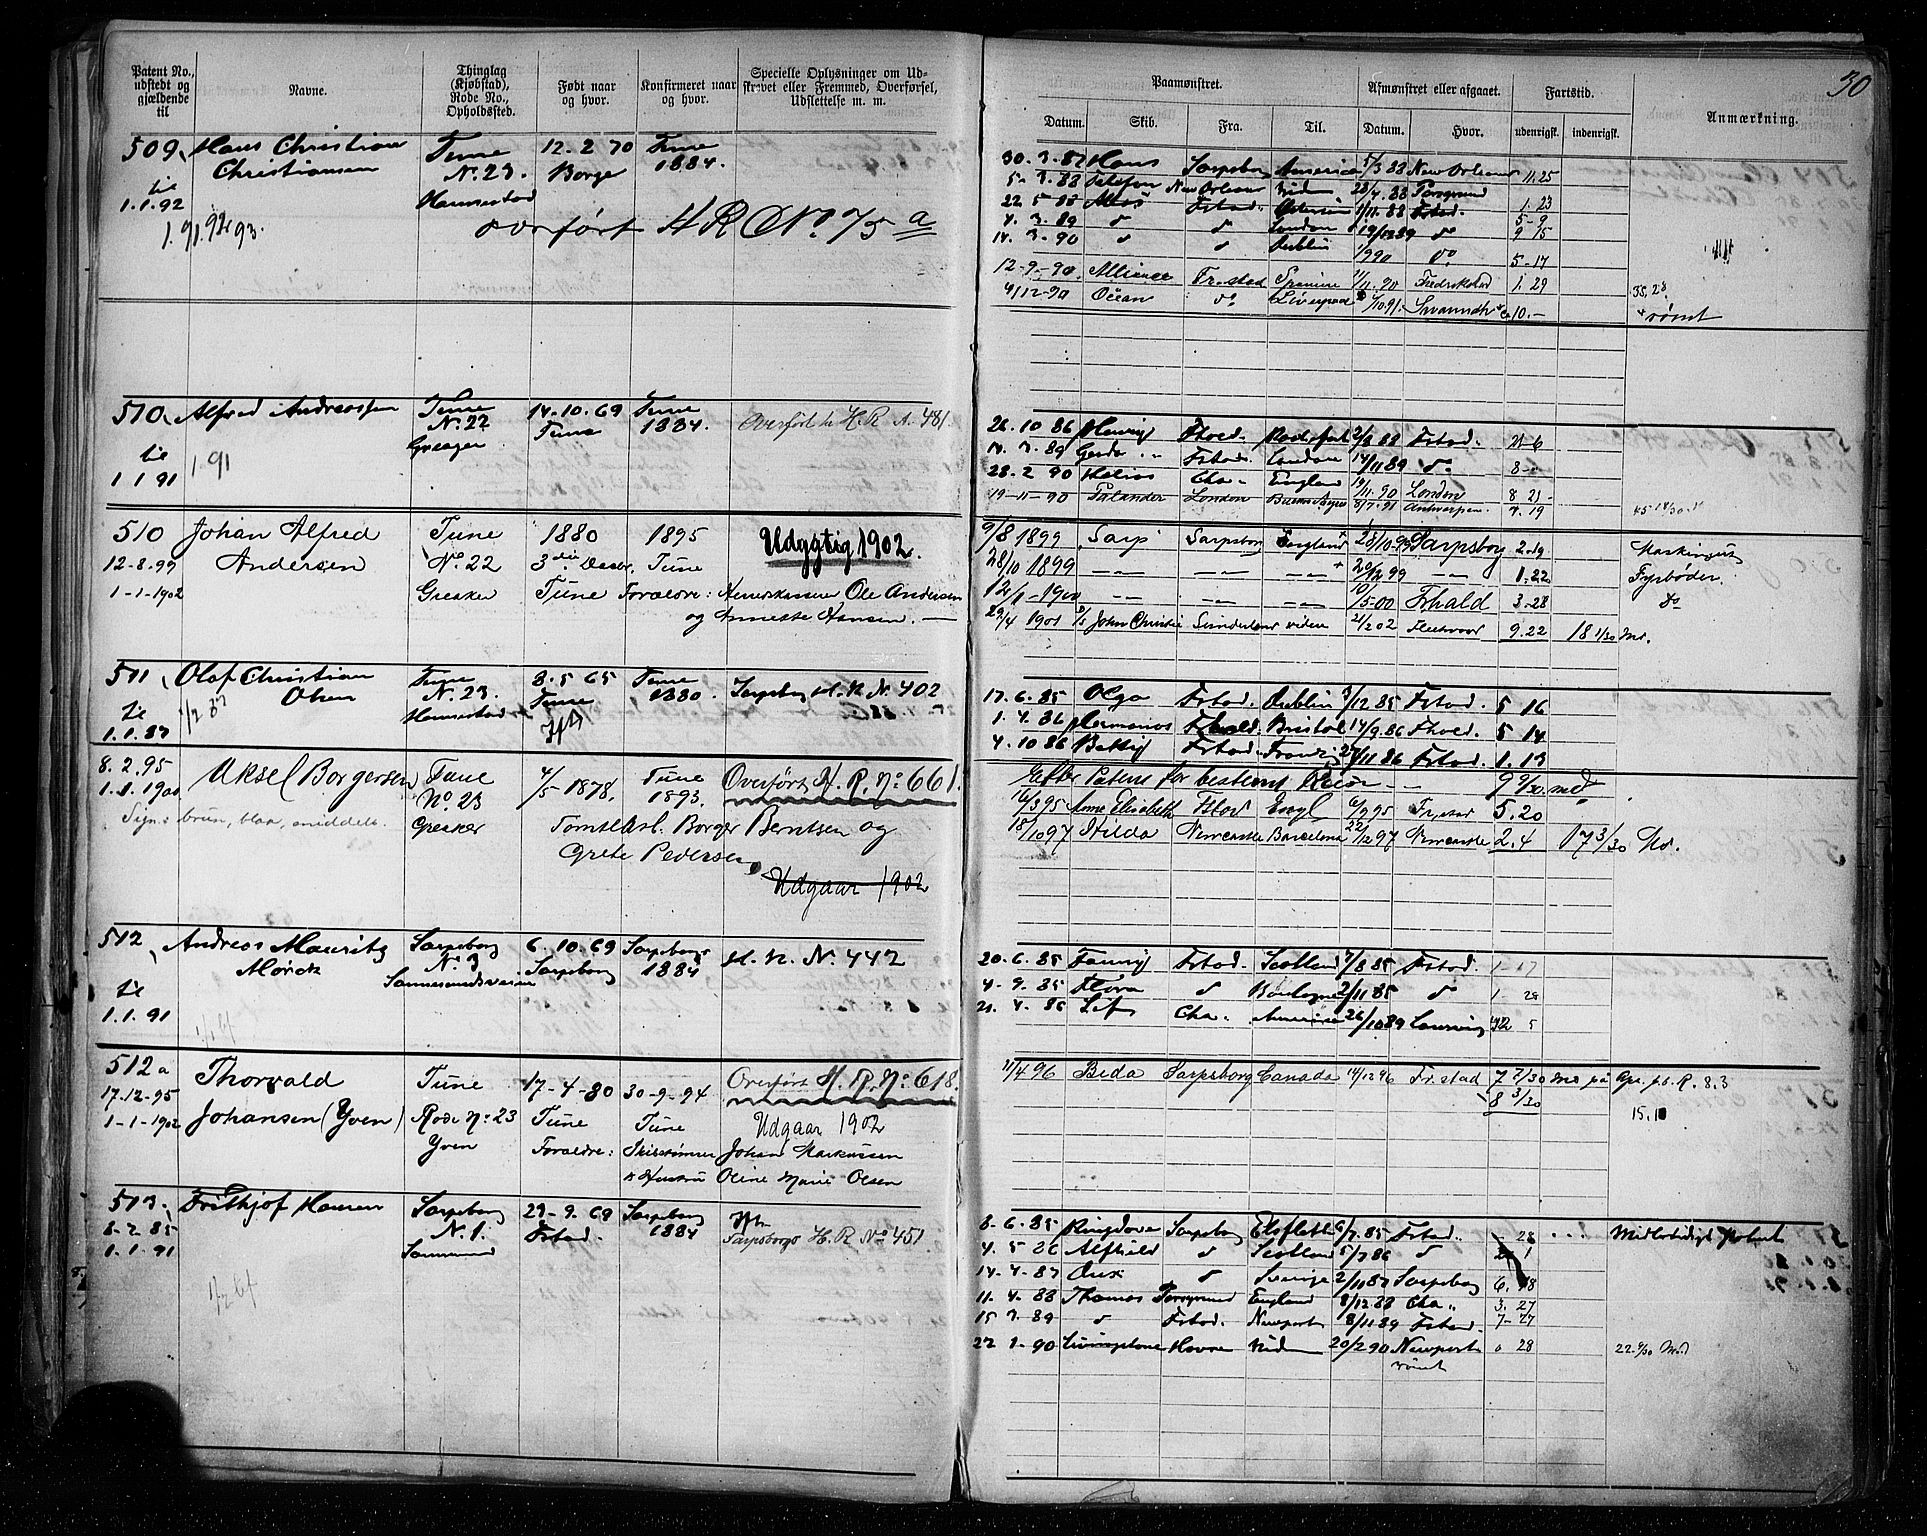 30
Patent No., udstedt og gjældende til
Navne.
Thinglag (Kjøbstad), Rode No., Opholdssted.
Født naar og hvor.
Konfirmeret naar og hvor.
Specielle Oplysninger om Udskrevet eller Fremmed, Overførsel, Udslettelse m. m.
Paamønstret.
Afmønstret eller afgaaet.
Fartstid.
Anmærkning.
Datum. Skib. Fra. Til. Datum. Hvor. udenrigsk. indenrigsk.
509 Hans Christian Tune 12-2 70 Tune
Christiansen N. 23. Borge 1884.
til
1.1.92 Hannestad
overført H R No. 75 a
30-3-87 Hans Sarpsborg America 5/3 88 New Orleans 11.25
5-3.88 Telefon New Orleans 28/4.88 Porsgrund
22-5 88 Fstad. 1/11.88 Fstad. 1.23
4.3.89 London 19/12 89 do 5-9
14.3-90 Dublin do 5-17
12-9-90 Alliance Fr.stad 11/11.90 Fredrikstad 1.29
4/12-90 Ocean do Liverpool 10.-
rømt
510 Alfred Andreassen Tune 14-10.69 Tune
til N. 22 Tune 1884.
1 1 91 Greager
1.91
Overført til H.R N. 481.
26.10 86 Henrig Fhald. 2/8 88 Fstad.
14.3.89 Gerda Fstad. London 14/11 89 do
28.2 90 Helios Cha England 19/11.90 London 8 21
19-11-90 London Buenos Ayres 8/7.91 Antwerpen. 7.19
510 Johan Alfred Tune 1880 1895 Udygtig 1902.
12-8.99 Andersen No. 22 3die Decbr. Tune
1-1-1902 Greaker Tune Forældre: Ole Andersen
og Annette Hansen.
9/8 1899 Sarp Sarpsborg England 28/10-99 Sarpsborg 2.19 Maskingut
28/10 1899 20/12 99 1.22 Fyrbøder.
12/1-1900 10/5-00 Frhald 3-28 do
29/4 1901 John Christie Sunderland viden 21/2 02 9.22 18 1/30 Md.
511 Olaf Christian Tune 8.5 65 Tune
Olsen N. 23. Tune 1880 Sarpsborg H. R N. 402
til Hannestad
1.1.87
17.6.85 Olga Fstad. Dublin 3/12 85 Fstad. 5 16
1.4.86 Hermanos Fhald Bristol 14/9.86 Fhald. 5 14
4.10 86 Betty Fstad. 27/11 86 Fstad. 1.13
8.2.95 Aksel Borgersen Tune 4/5 1878. Tune Overført H. R. No 661.
1.1.1900 No 23 1893.
Sign: brun, blaa, middels. Greaker Tomtebesl. Borger Berntsen og
Grete Pedersen
Udgaar 1902
Efter Patent for bestemt Reiser 9 9/30 md
16/3 95 Anne Elisabeth Fstad Engl 6/9 95 Fr.stad 5.20
18/10 97 Hilda Newcastle Barcelona 22/12 97 Newcastle 2.4 17 3/30 Md.
512 Andreas Mauritz Sarpsborg 6.10.69 Sarpsborg H. R. N. 442
Mørck N. 3 Sarpsborg 1884
til Sannesundsveien
1.1.91
20.6.85 Fanny Fstad. Scotland 7/8 85 Fstad. 1-17
4-9.85 Flora do Boulogne 2/11 85 do 1-28
21.4.86 Leif Cha. Amerika 26/10 89 Laurvig 42 5
512a Thorvald Tune 17-4-80 30-9-94 Overført H. R. No 618.
17.12-95 Johansen (Yven) Rode No 23 Tune Tune Udgaar 1902
1-1-1902 Yven Forældre: Skibstømmer Johan Markussen
& Hustru Oline Marie Olsen
11/4 96 Beda Sarpsborg Canada 14/12 96 Fr.stad 7 7/30 Md
8 3/30
15.10
513. Frithjof Hansen Sarpsborg 29-9.69 Sarpsborg
8-2.85 N. 1. Fstad. 1884 Sarpsborgs H. R No 451
1.1.91 Sannesund
8-6.85 Ringdove Sarpsborg Elsfleth 6/7.85 Fstad. 28 Midlertidigt Patent
4.5 86 Alfhild do Scotland 5/7 86 do
14-4-87 do Sverige 2/11 87 Sarpsborg 6.18
11.4.88 Thomas Porsgrund England 8/12 88 Cha. 3.27
15 3.89 do Fstad. Newport 8/11 89 Fstad. 7-27
22 1-90 Livingstone Havre 20/2 90 Newport 0 28
rømt
22.9/30 Md